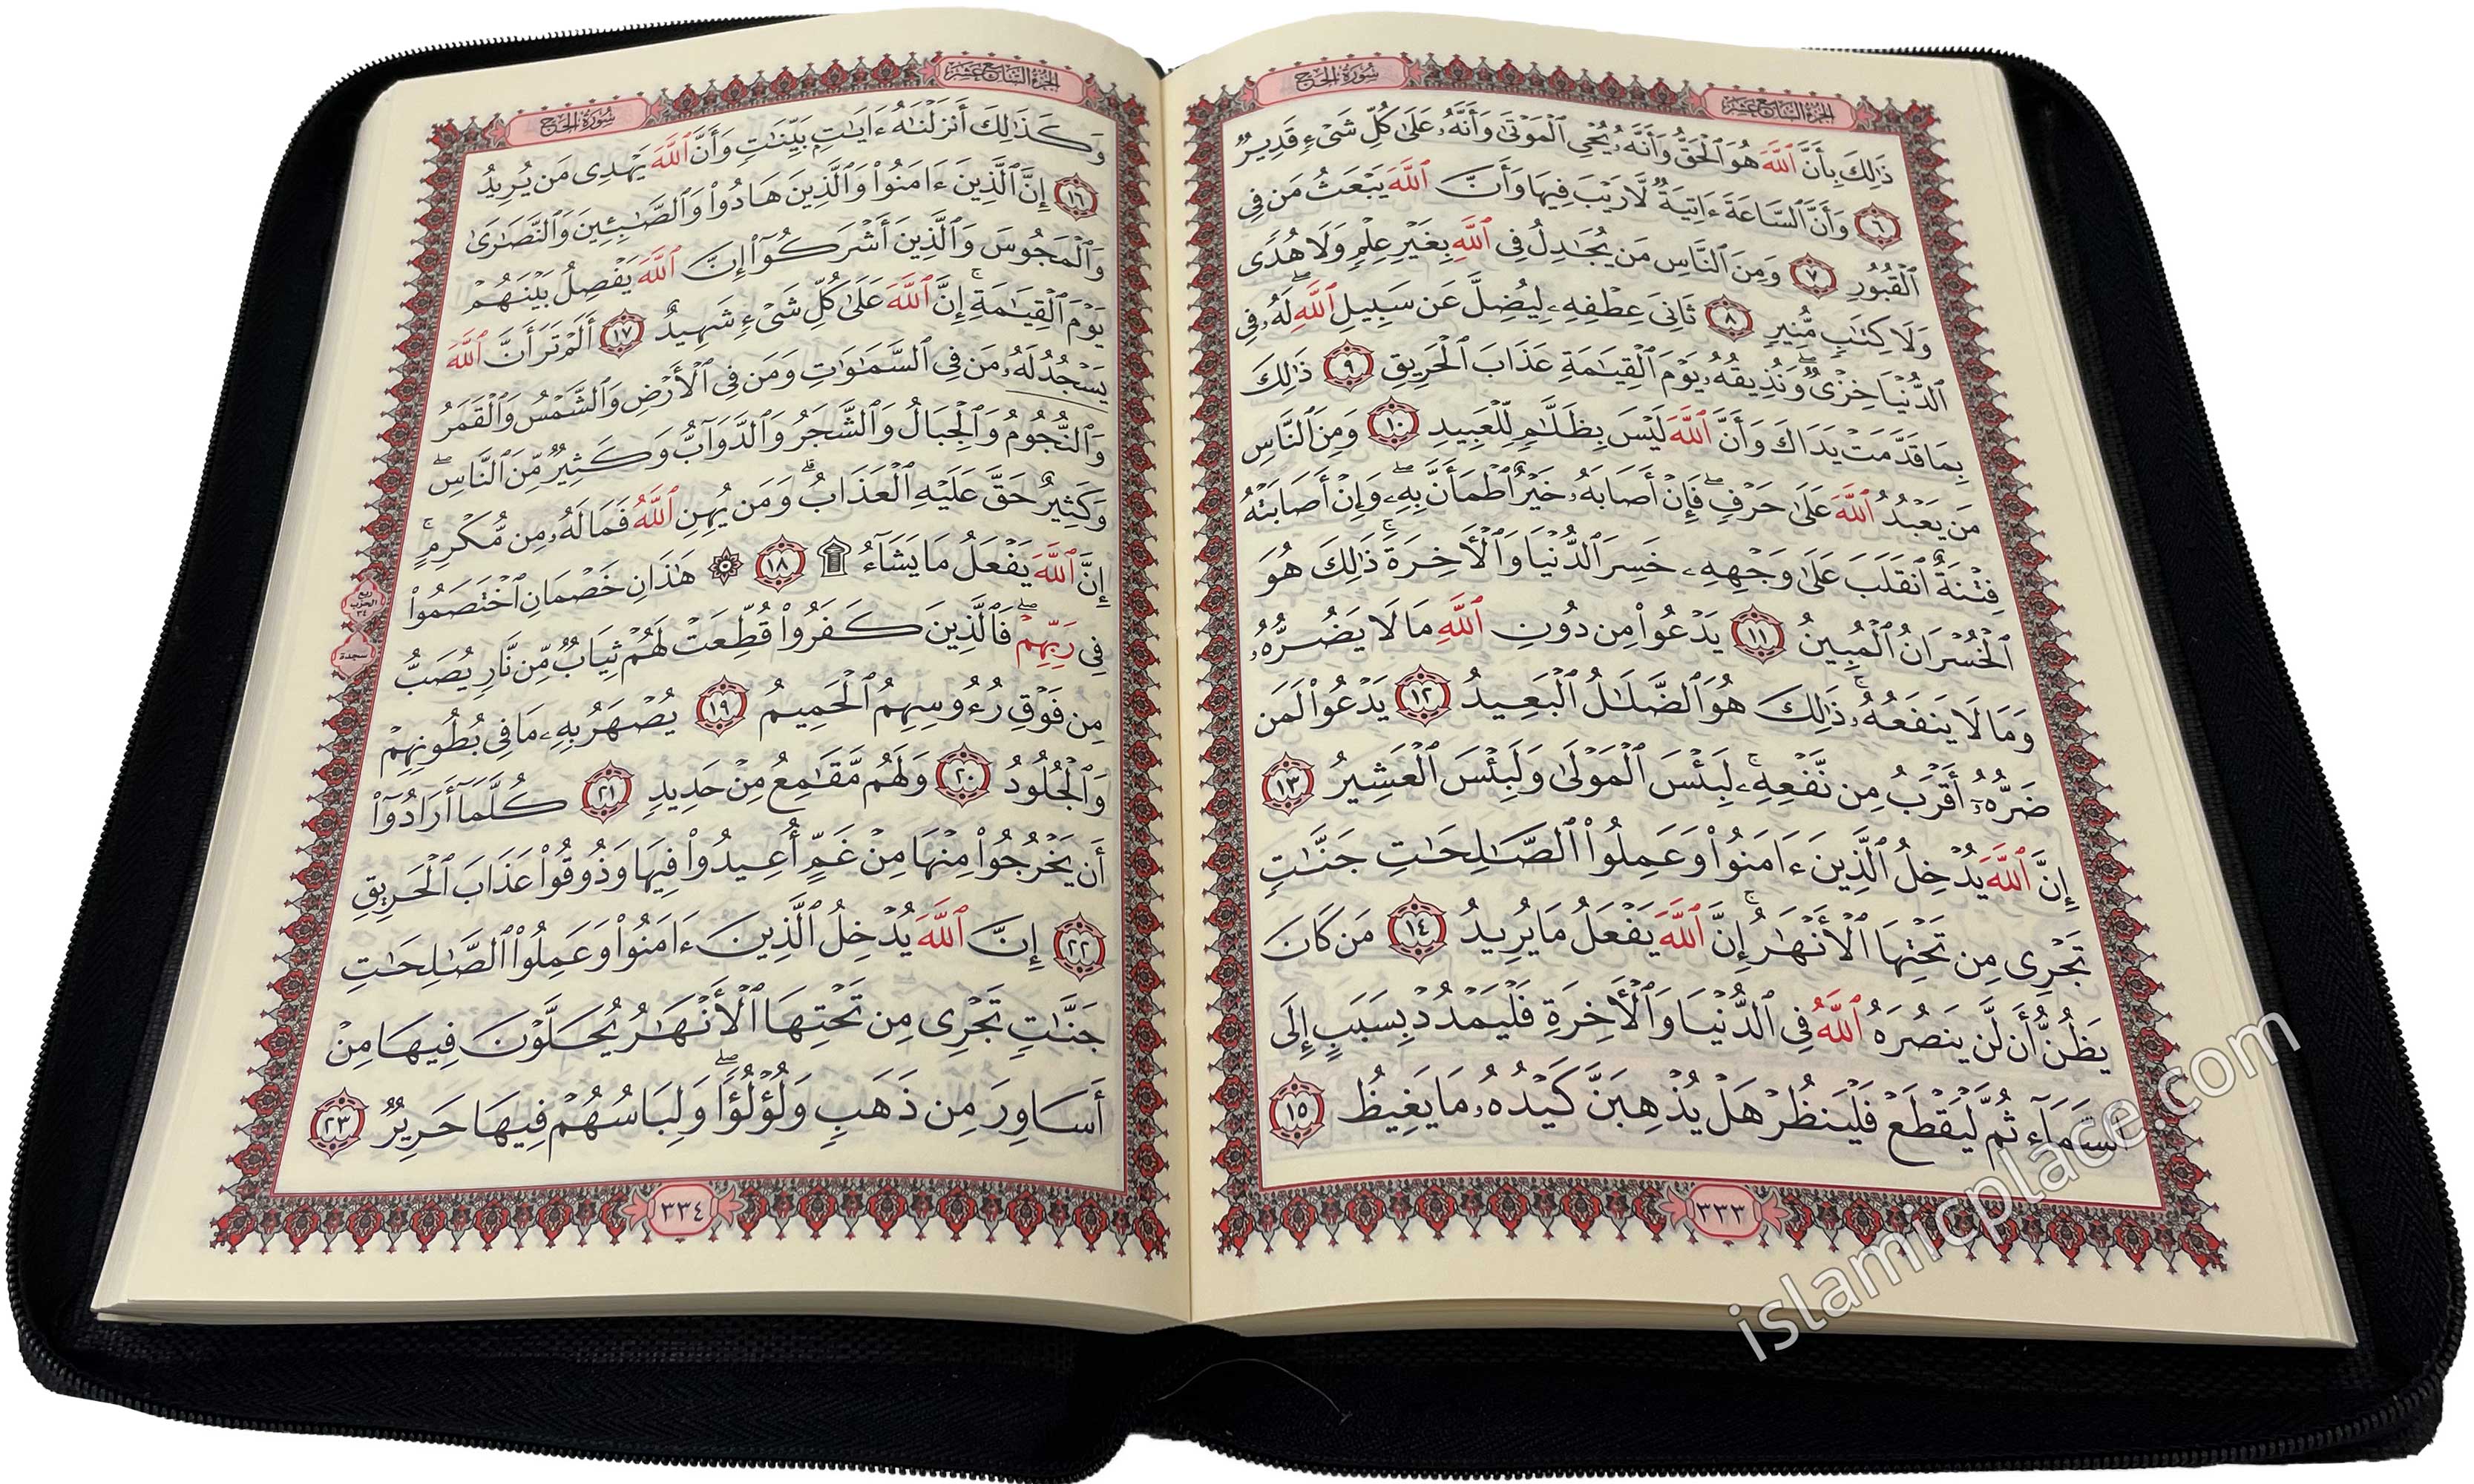 سُورَةُ الحَجّ
الجُزْءُ السَّابِعَ عَشَرَ
ذَٰلِكَ بِأَنَّ ٱللَّهَ هُوَ ٱلْحَقُّ وَأَنَّهُۥ يُحْىِ ٱلْمَوْتَىٰ وَأَنَّهُۥ عَلَىٰ كُلِّ شَىْءٍ قَدِيرٌ
٦ وَأَنَّ ٱلسَّاعَةَ ءَاتِيَةٌ لَّا رَيْبَ فِيهَا وَأَنَّ ٱللَّهَ يَبْعَثُ مَن فِى
ٱلْقُبُورِ ٧ وَمِنَ ٱلنَّاسِ مَن يُجَٰدِلُ فِى ٱللَّهِ بِغَيْرِ عِلْمٍ وَلَا هُدًى
وَلَا كِتَٰبٍ مُّنِيرٍ ٨ ثَانِىَ عِطْفِهِۦ لِيُضِلَّ عَن سَبِيلِ ٱللَّهِ ۖ لَهُۥ فِى
ٱلدُّنْيَا خِزْىٌ ۖ وَنُذِيقُهُۥ يَوْمَ ٱلْقِيَٰمَةِ عَذَابَ ٱلْحَرِيقِ ٩ ذَٰلِكَ
بِمَا قَدَّمَتْ يَدَاكَ وَأَنَّ ٱللَّهَ لَيْسَ بِظَلَّٰمٍ لِّلْعَبِيدِ ١٠ وَمِنَ ٱلنَّاسِ
مَن يَعْبُدُ ٱللَّهَ عَلَىٰ حَرْفٍ ۖ فَإِنْ أَصَابَهُۥ خَيْرٌ ٱطْمَأَنَّ بِهِۦ ۖ وَإِنْ أَصَابَتْهُ
فِتْنَةٌ ٱنقَلَبَ عَلَىٰ وَجْهِهِۦ خَسِرَ ٱلدُّنْيَا وَٱلْأَخِرَةَ ۚ ذَٰلِكَ هُوَ
ٱلْخُسْرَانُ ٱلْمُبِينُ ١١ يَدْعُوا۟ مِن دُونِ ٱللَّهِ مَا لَا يَضُرُّهُۥ
وَمَا لَا يَنفَعُهُۥ ۚ ذَٰلِكَ هُوَ ٱلضَّلَٰلُ ٱلْبَعِيدُ ١٢ يَدْعُوا۟ لَمَن
ضَرُّهُۥٓ أَقْرَبُ مِن نَّفْعِهِۦ ۚ لَبِئْسَ ٱلْمَوْلَىٰ وَلَبِئْسَ ٱلْعَشِيرُ ١٣
إِنَّ ٱللَّهَ يُدْخِلُ ٱلَّذِينَ ءَامَنُوا۟ وَعَمِلُوا۟ ٱلصَّٰلِحَٰتِ جَنَّٰتٍ
تَجْرِى مِن تَحْتِهَا ٱلْأَنْهَٰرُ ۚ إِنَّ ٱللَّهَ يَفْعَلُ مَا يُرِيدُ ١٤ مَن كَانَ
يَظُنُّ أَن لَّن يَنصُرَهُ ٱللَّهُ فِى ٱلدُّنْيَا وَٱلْأَخِرَةِ فَلْيَمْدُدْ بِسَبَبٍ إِلَى
ٱلسَّمَآءِ ثُمَّ لْيَقْطَعْ فَلْيَنظُرْ هَلْ يُذْهِبَنَّ كَيْدُهُۥ مَا يَغِيظُ ١٥
٣٣٣
الجُزْءُ السَّابِعَ عَشَرَ
سُورَةُ الحَجّ
وَكَذَٰلِكَ أَنزَلْنَٰهُ ءَايَٰتٍۭ بَيِّنَٰتٍ وَأَنَّ ٱللَّهَ يَهْدِى مَن يُرِيدُ
١٦ إِنَّ ٱلَّذِينَ ءَامَنُوا۟ وَٱلَّذِينَ هَادُوا۟ وَٱلصَّٰبِـِٔينَ وَٱلنَّصَٰرَىٰ
وَٱلْمَجُوسَ وَٱلَّذِينَ أَشْرَكُوٓا۟ إِنَّ ٱللَّهَ يَفْصِلُ بَيْنَهُمْ
يَوْمَ ٱلْقِيَٰمَةِ ۚ إِنَّ ٱللَّهَ عَلَىٰ كُلِّ شَىْءٍ شَهِيدٌ ١٧ أَلَمْ تَرَ أَنَّ ٱللَّهَ
يَسْجُدُ لَهُۥ مَن فِى ٱلسَّمَٰوَٰتِ وَمَن فِى ٱلْأَرْضِ وَٱلشَّمْسُ وَٱلْقَمَرُ
وَٱلنُّجُومُ وَٱلْجِبَالُ وَٱلشَّجَرُ وَٱلدَّوَآبُّ وَكَثِيرٌ مِّنَ ٱلنَّاسِ ۖ
وَكَثِيرٌ حَقَّ عَلَيْهِ ٱلْعَذَابُ ۗ وَمَن يُهِنِ ٱللَّهُ فَمَا لَهُۥ مِن مُّكْرِمٍ ۚ
إِنَّ ٱللَّهَ يَفْعَلُ مَا يَشَآءُ ۩ ١٨ ۞ هَٰذَانِ خَصْمَانِ ٱخْتَصَمُوا۟
فِى رَبِّهِمْ ۖ فَٱلَّذِينَ كَفَرُوا۟ قُطِّعَتْ لَهُمْ ثِيَابٌ مِّن نَّارٍ يُصَبُّ
مِن فَوْقِ رُءُوسِهِمُ ٱلْحَمِيمُ ١٩ يُصْهَرُ بِهِۦ مَا فِى بُطُونِهِمْ
وَٱلْجُلُودُ ٢٠ وَلَهُم مَّقَٰمِعُ مِنْ حَدِيدٍ ٢١ كُلَّمَآ أَرَادُوٓا۟
أَن يَخْرُجُوا۟ مِنْهَا مِنْ غَمٍّ أُعِيدُوا۟ فِيهَا وَذُوقُوا۟ عَذَابَ ٱلْحَرِيقِ
٢٢ إِنَّ ٱللَّهَ يُدْخِلُ ٱلَّذِينَ ءَامَنُوا۟ وَعَمِلُوا۟ ٱلصَّٰلِحَٰتِ
جَنَّٰتٍ تَجْرِى مِن تَحْتِهَا ٱلْأَنْهَٰرُ يُحَلَّوْنَ فِيهَا مِنْ
أَسَاوِرَ مِن ذَهَبٍ وَلُؤْلُؤًا ۖ وَلِبَاسُهُمْ فِيهَا حَرِيرٌ ٢٣
ربع
الحزب
٣٤
سجدة
٣٣٤
islamicplace.com